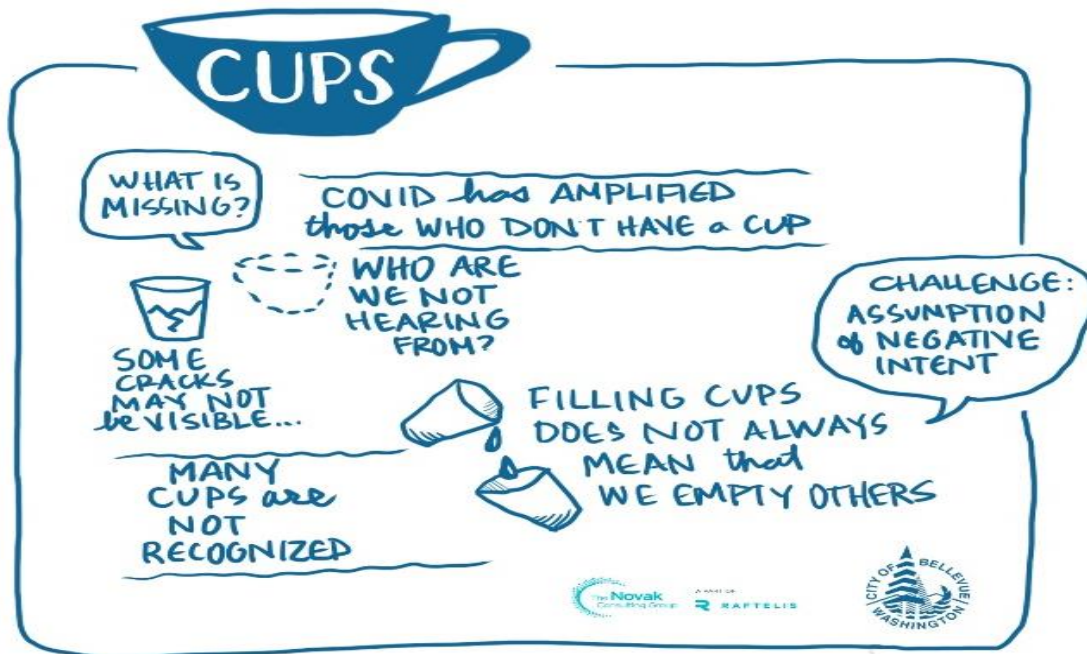 CUPS
WHAT IS
MISSING?
COVID has AMPLIFIED
those WHO DON'T HAVE a CUP
WHO ARE
WE NOT
HEARING
FROM?
SOME
CRACKS
MAY NOT
be VISIBLE...
CHALLENGE:
ASSUMPTION
of NEGATIVE
INTENT
FILLING CUPS
DOES NOT ALWAYS
MEAN that
WE EMPTY OTHERS
MANY
CUPS are
NOT
RECOGNIZED
The Novak
Consulting Group
A PART OF
RAFTELIS
CITY OF BELLEVUE
WASHINGTON